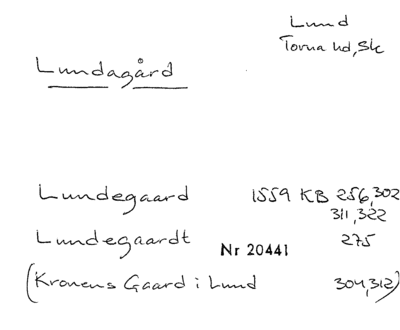 Lund
Torna hd, Sk
Lundagård
Lundegaard 1559 KB 256,302
311,322
Lundegaardt 275
Nr 20441
(Kronens Gaard i Lund 304,312)